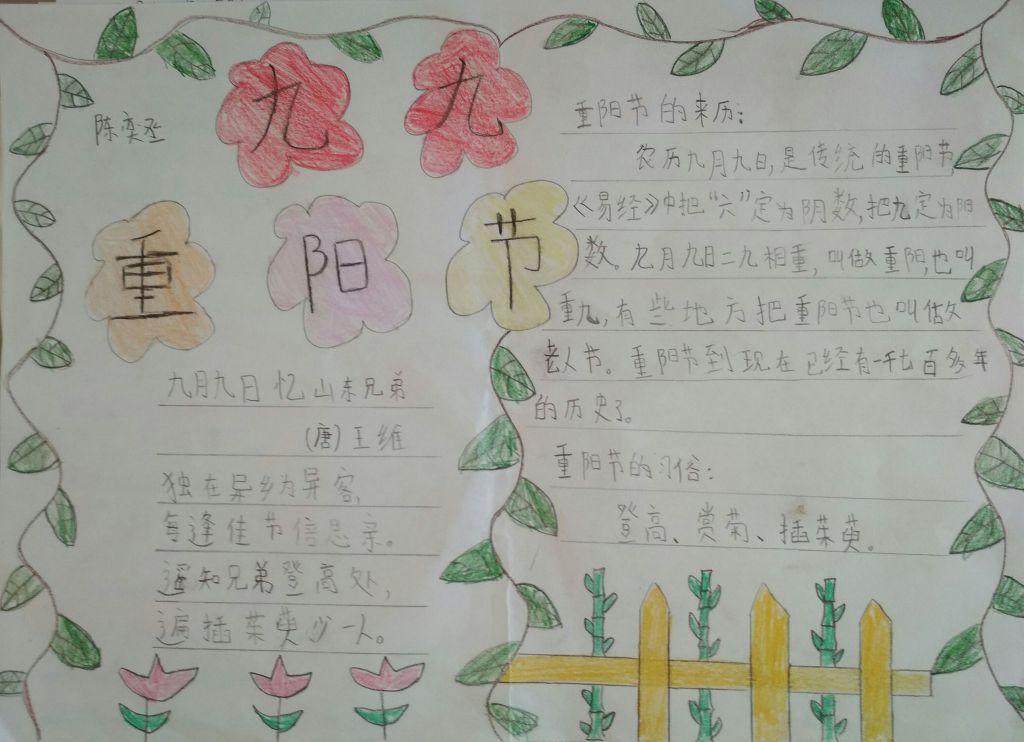 陈奕丞
九九
重阳节
九月九日忆山东兄弟
(唐)王维
独在异乡为异客,
每逢佳节信思亲。
遥知兄弟登高处,
遍插茱萸少一人。
重阳节的来历:
农历九月九日,是传统的重阳节
《易经》中把“六”定为阴数,把九定为阳
数。九月九日二九相重,叫做重阳,也叫
重九,有些地方把重阳节也叫做
老人节。重阳节到现在已经有一千七百多年
的历史了。
重阳节的习俗:
登高、赏菊、插茱萸。